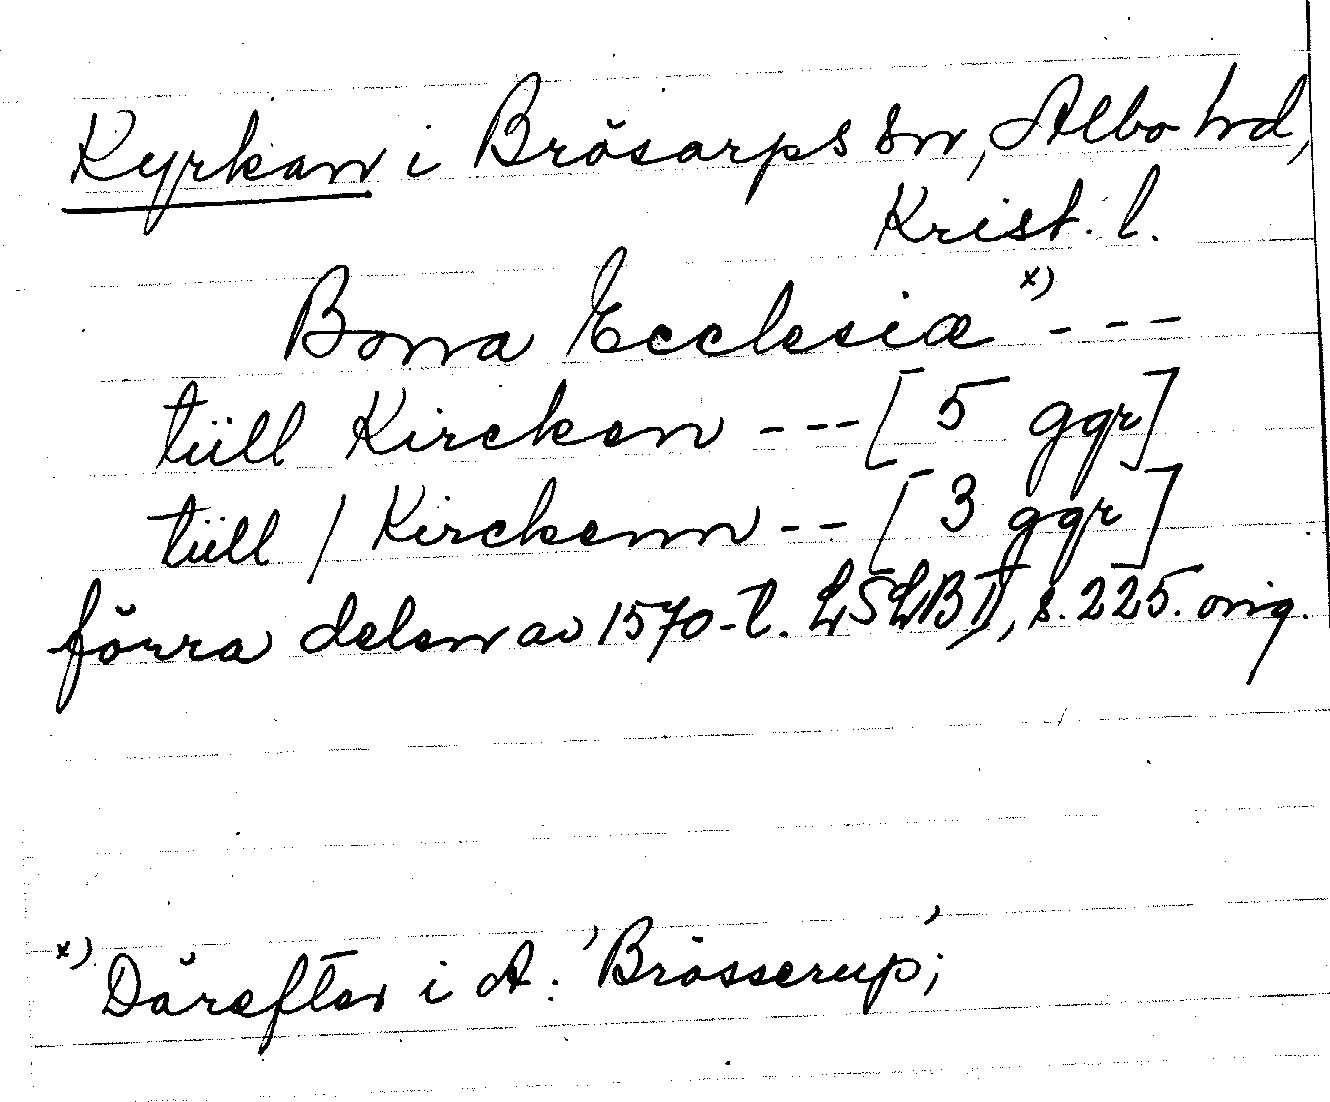 Kyrkan i Brösarps sn, Albo hd,
Krist. l.
Bona Ecclesiæ x) - - -
tüll Kircken - - - [5 ggr]
tüll / Kirckenn - - [3 ggr]
förra delen av 1570-t. LSLB II, s. 225. orig.
x) Därefter i A: 'Brösserup';